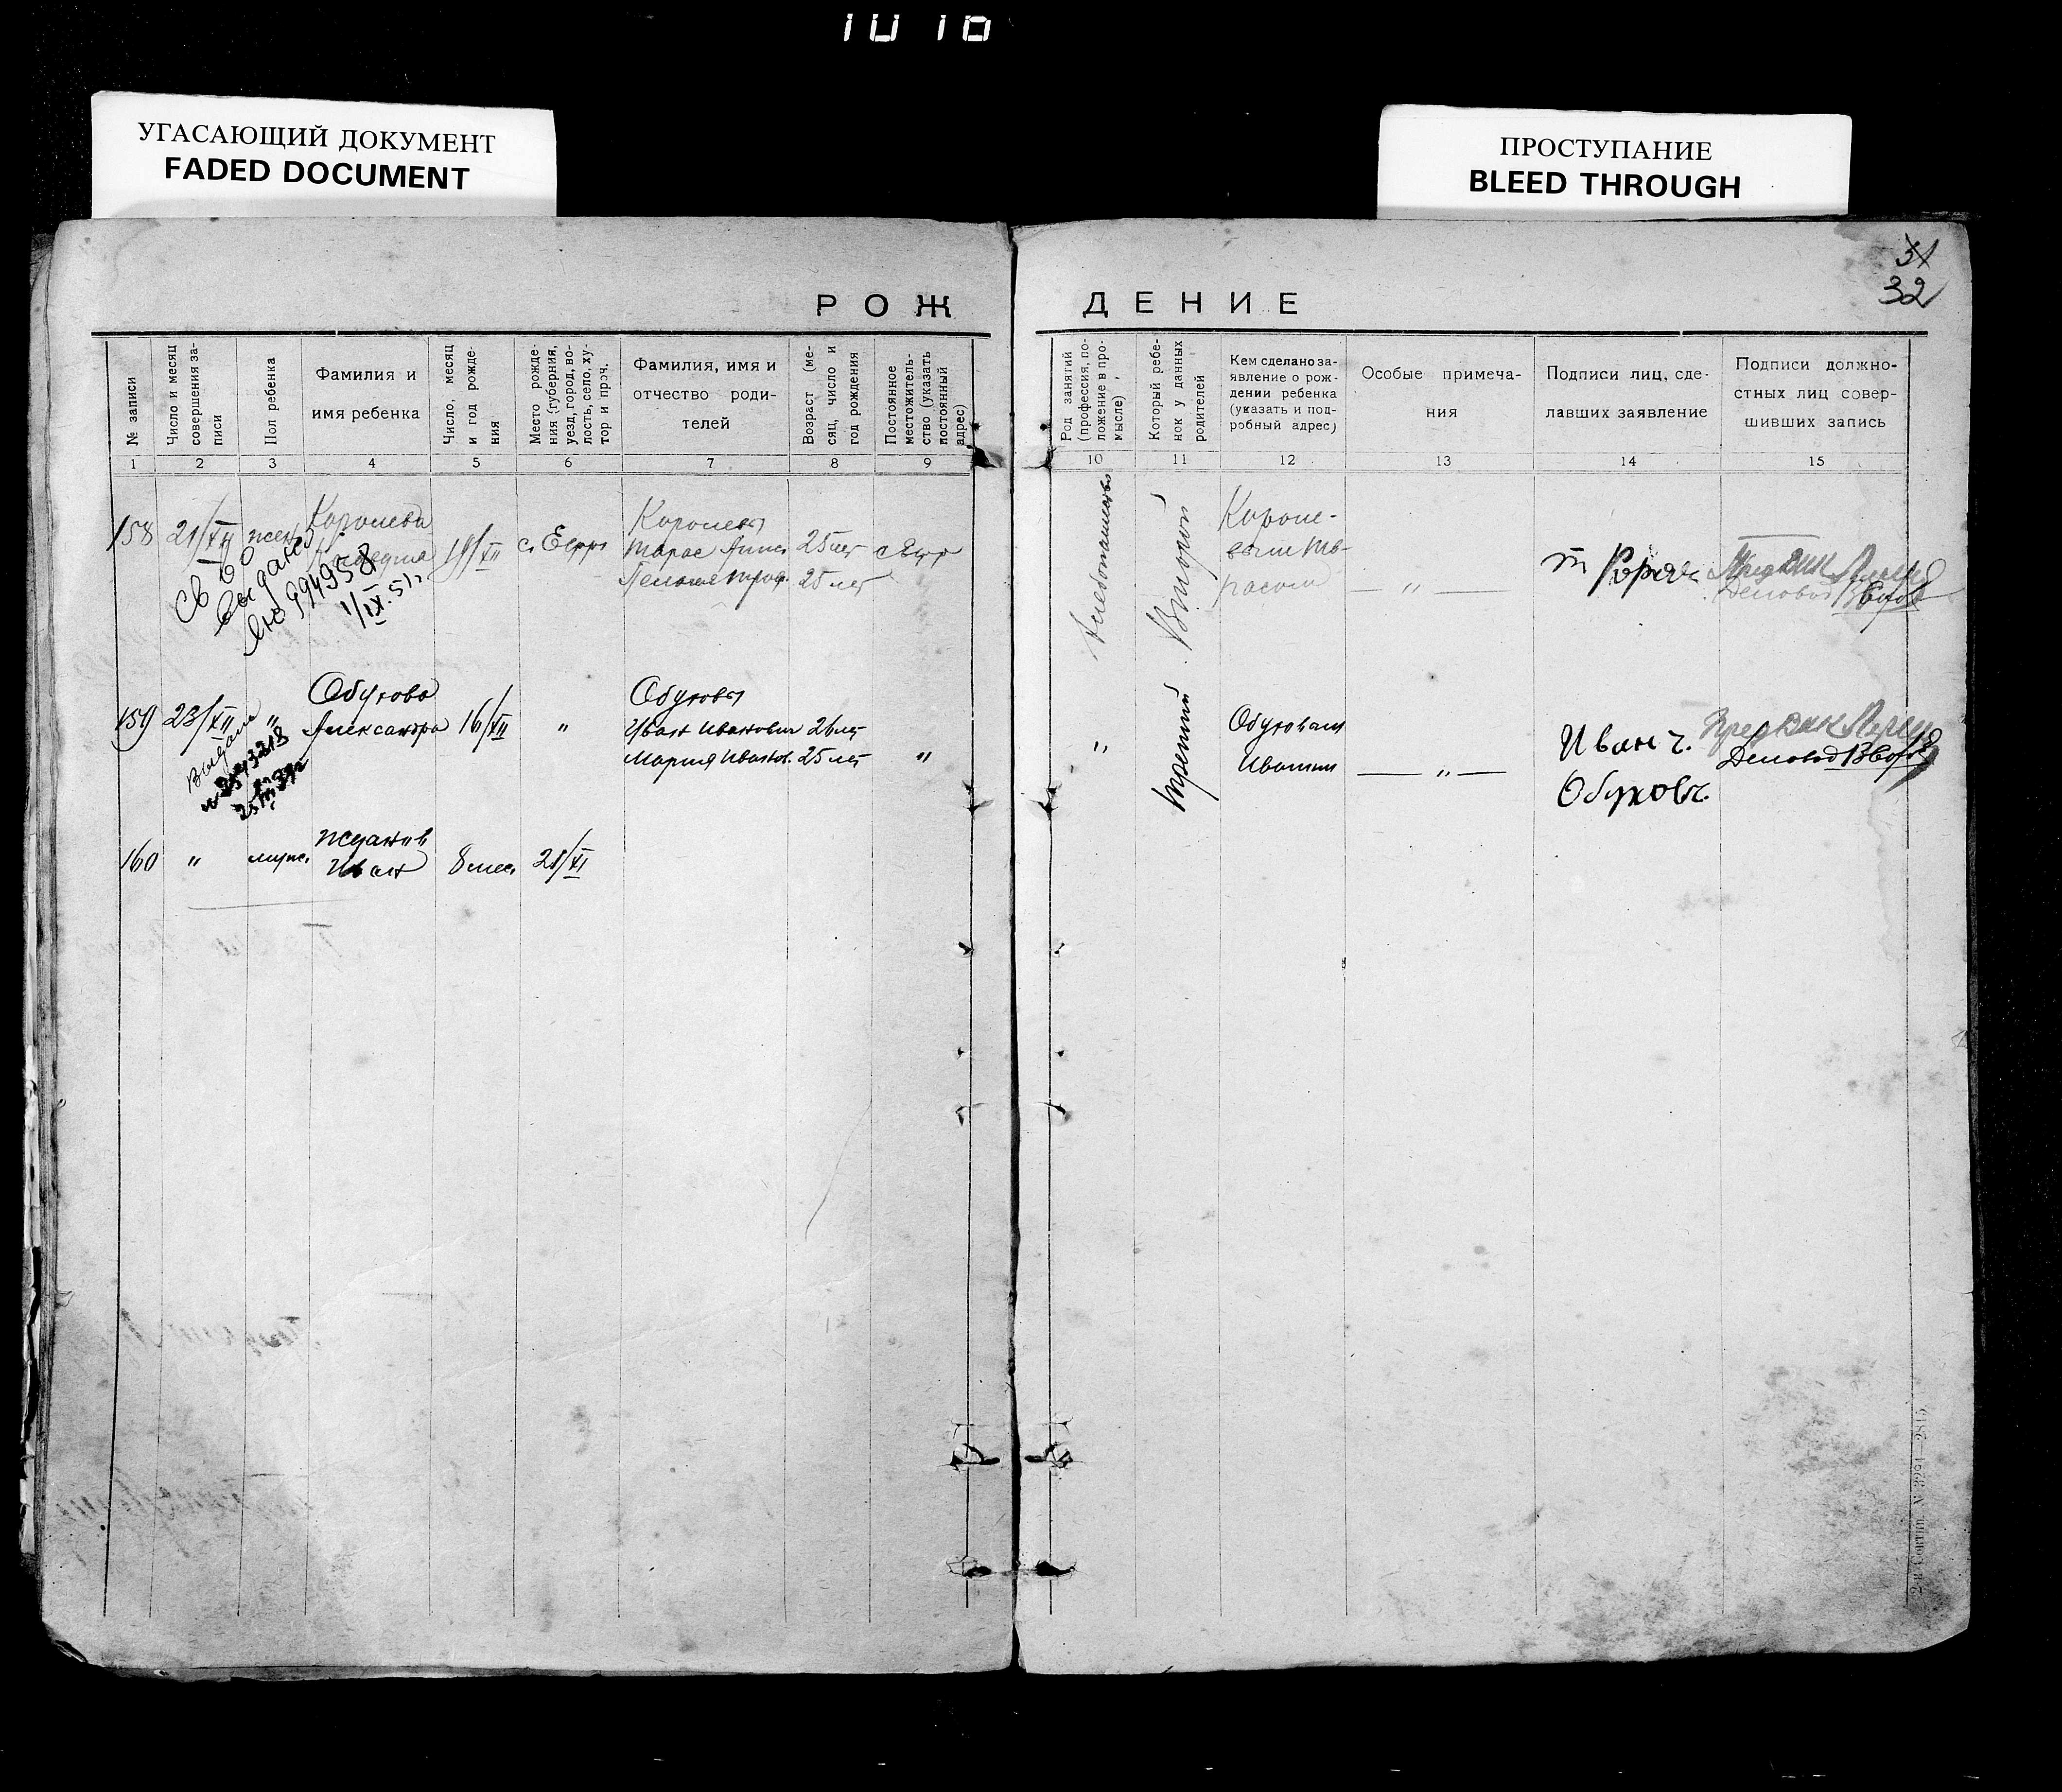 УГАСАЮЩИЙ ДОКУМЕНТ
FADED DOCUMENT
ПРОСТУПАНИЕ
BLEED THROUGH
31
32
РОЖДЕНИЕ
№ записи
Число и месяц совершения записи
Пол ребенка
Фамилия и
имя ребенка
Число, месяц и год рождения
Место рождения (губерния, уезд, город, волость, село, хутор и проч.
Фамилия, имя и
отчество роди-
телей
Возраст (месяц, число и год рождения
Постоянное местожительство (указать постоянный адрес)
Род занятий (профессия, положение в промысле)
Который ребенок у данных родителей
Кем сделано за-
явление о рож-
дении ребенка
(указать и под-
робный адрес)
Особые примеча-
ния
Подписи лиц, сде-
лавших заявление
Подписи должно-
стных лиц совер-
шивших запись
1 2 3 4 5 6 7 8 9 10 11 12 13 14 15
158 21/XII жен. Королева
19/XII
Королевы
Тарас 25 лет
25 лет
Хлебопашество
Второй
Короле-
вым Та-
расом
— „ —
Св во
выдано
994958
1/IX. 51г
159 23/XII „ Обухова
Александра 16/XII „
Обуховы
Иван Иванович 26 лет
Мария Иванов. 25 лет „
„
третий
Обуховым
Иваном
— „ —
Иван
Обуховъ.
Выдана
160 „ муж. Жданов
Иван 8 мес. 21/XI